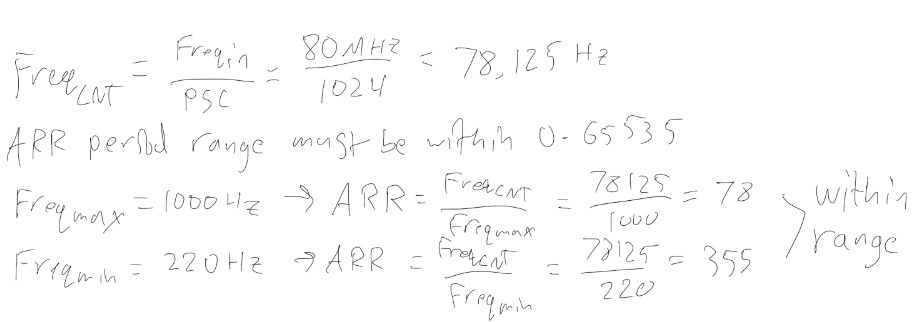 Freq_CNT = Freqin / PSC = 80MHz / 1024 = 78,125 Hz
ARR period range must be within 0-65535
Freq_max = 1000Hz → ARR = Freq_CNT / Freq_max = 78125 / 1000 = 78
Freq_min = 220Hz → ARR = Freq_CNT / Freq_min = 78125 / 220 = 355
within range